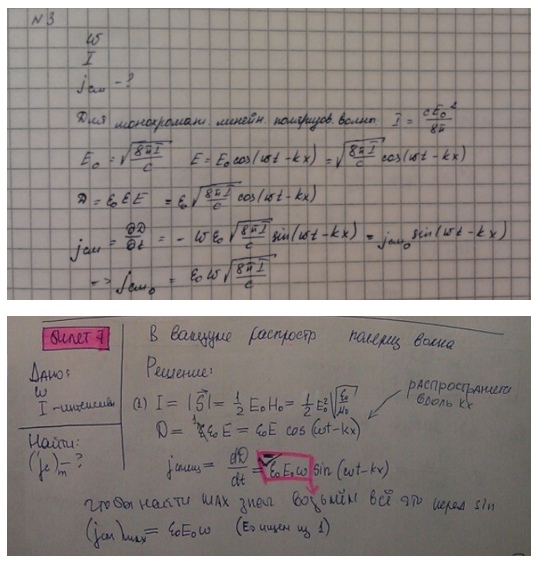 N3
w
I
jсм - ?
Для монохромат. линейн. поляризов. волны I = cE₀²/8π
E₀ = √(8πI/c) E = E₀cos(wt-kx) = √(8πI/c) cos(wt-kx)
D = ε₀εE = ε₀√(8πI/c) cos(wt-kx)
jсм = ∂D/∂t = - wε₀√(8πI/c) sin(wt-kx) = jсм₀ sin(wt-kx)
=> jсм₀ = ε₀w√(8πI/c)
Билет 7
В вакууме распростр поляриз волна
Дано:
w
I - интенсивн
Найти:
(jc)m - ?
Решение:
(1) I = |S⃗| = 1/2 E₀H₀ = 1/2 E₀²√(ε₀/μ₀)
распространяется
вдоль kx
D = ε₀E = ε₀E cos(wt-kx)
jсмещ = dD/dt = ε₀E₀w sin(wt-kx)
чтобы найти мах знач возьмём всё что перед sin
(jсм)max = ε₀E₀w (E₀ ищем из 1)